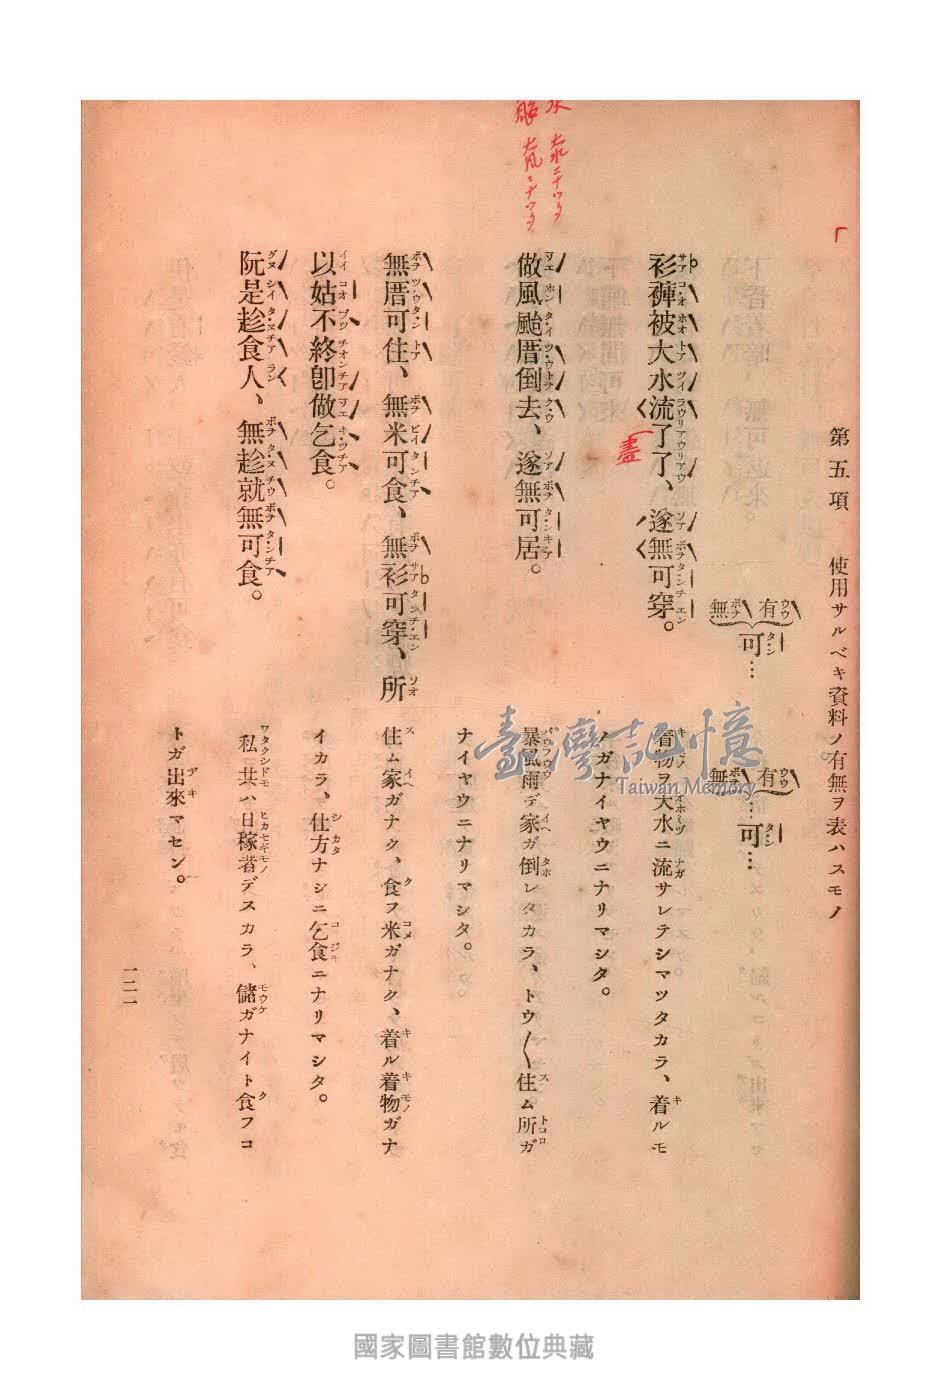 第五項　使用サルベキ資料ノ有無ヲ表ハスモノ
有 無 可…
有 無…可…
衫褲被大水流了了、遂無可穿。
盡
着物ヲ大水ニ流サレテシマツタカラ、着ルモ
ノガナイヤウニナリマシタ。
做風颱厝倒去、遂無可居。
暴風雨デ家ガ倒レタカラ、トウ〱住ム所ガ
ナイヤウニナリマシタ。
無厝可住、無米可食、無衫可穿、所
以姑不終卽做乞食。
住ム家ガナク、食フ米ガナク、着ル着物ガナ
イカラ、仕方ナシニ乞食ニナリマシタ。
阮是趁食人、無趁就無可食。
私共ハ日稼者デスカラ、儲ガナイト食フコ
トガ出來マセン。
一二一
臺灣記憶
Taiwan Memory
國家圖書館數位典藏